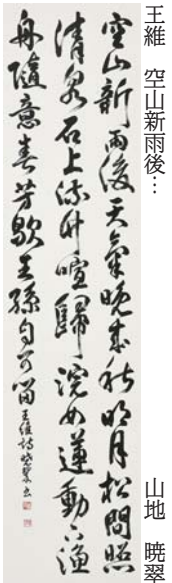 王維　空山新雨後…　山地　暁翠
空山新雨後天氣晚來秋明月松間照
清泉石上流竹喧歸浣女蓮動下漁
舟隨意春芳歇王孫自可留 王維詩 暁翠書